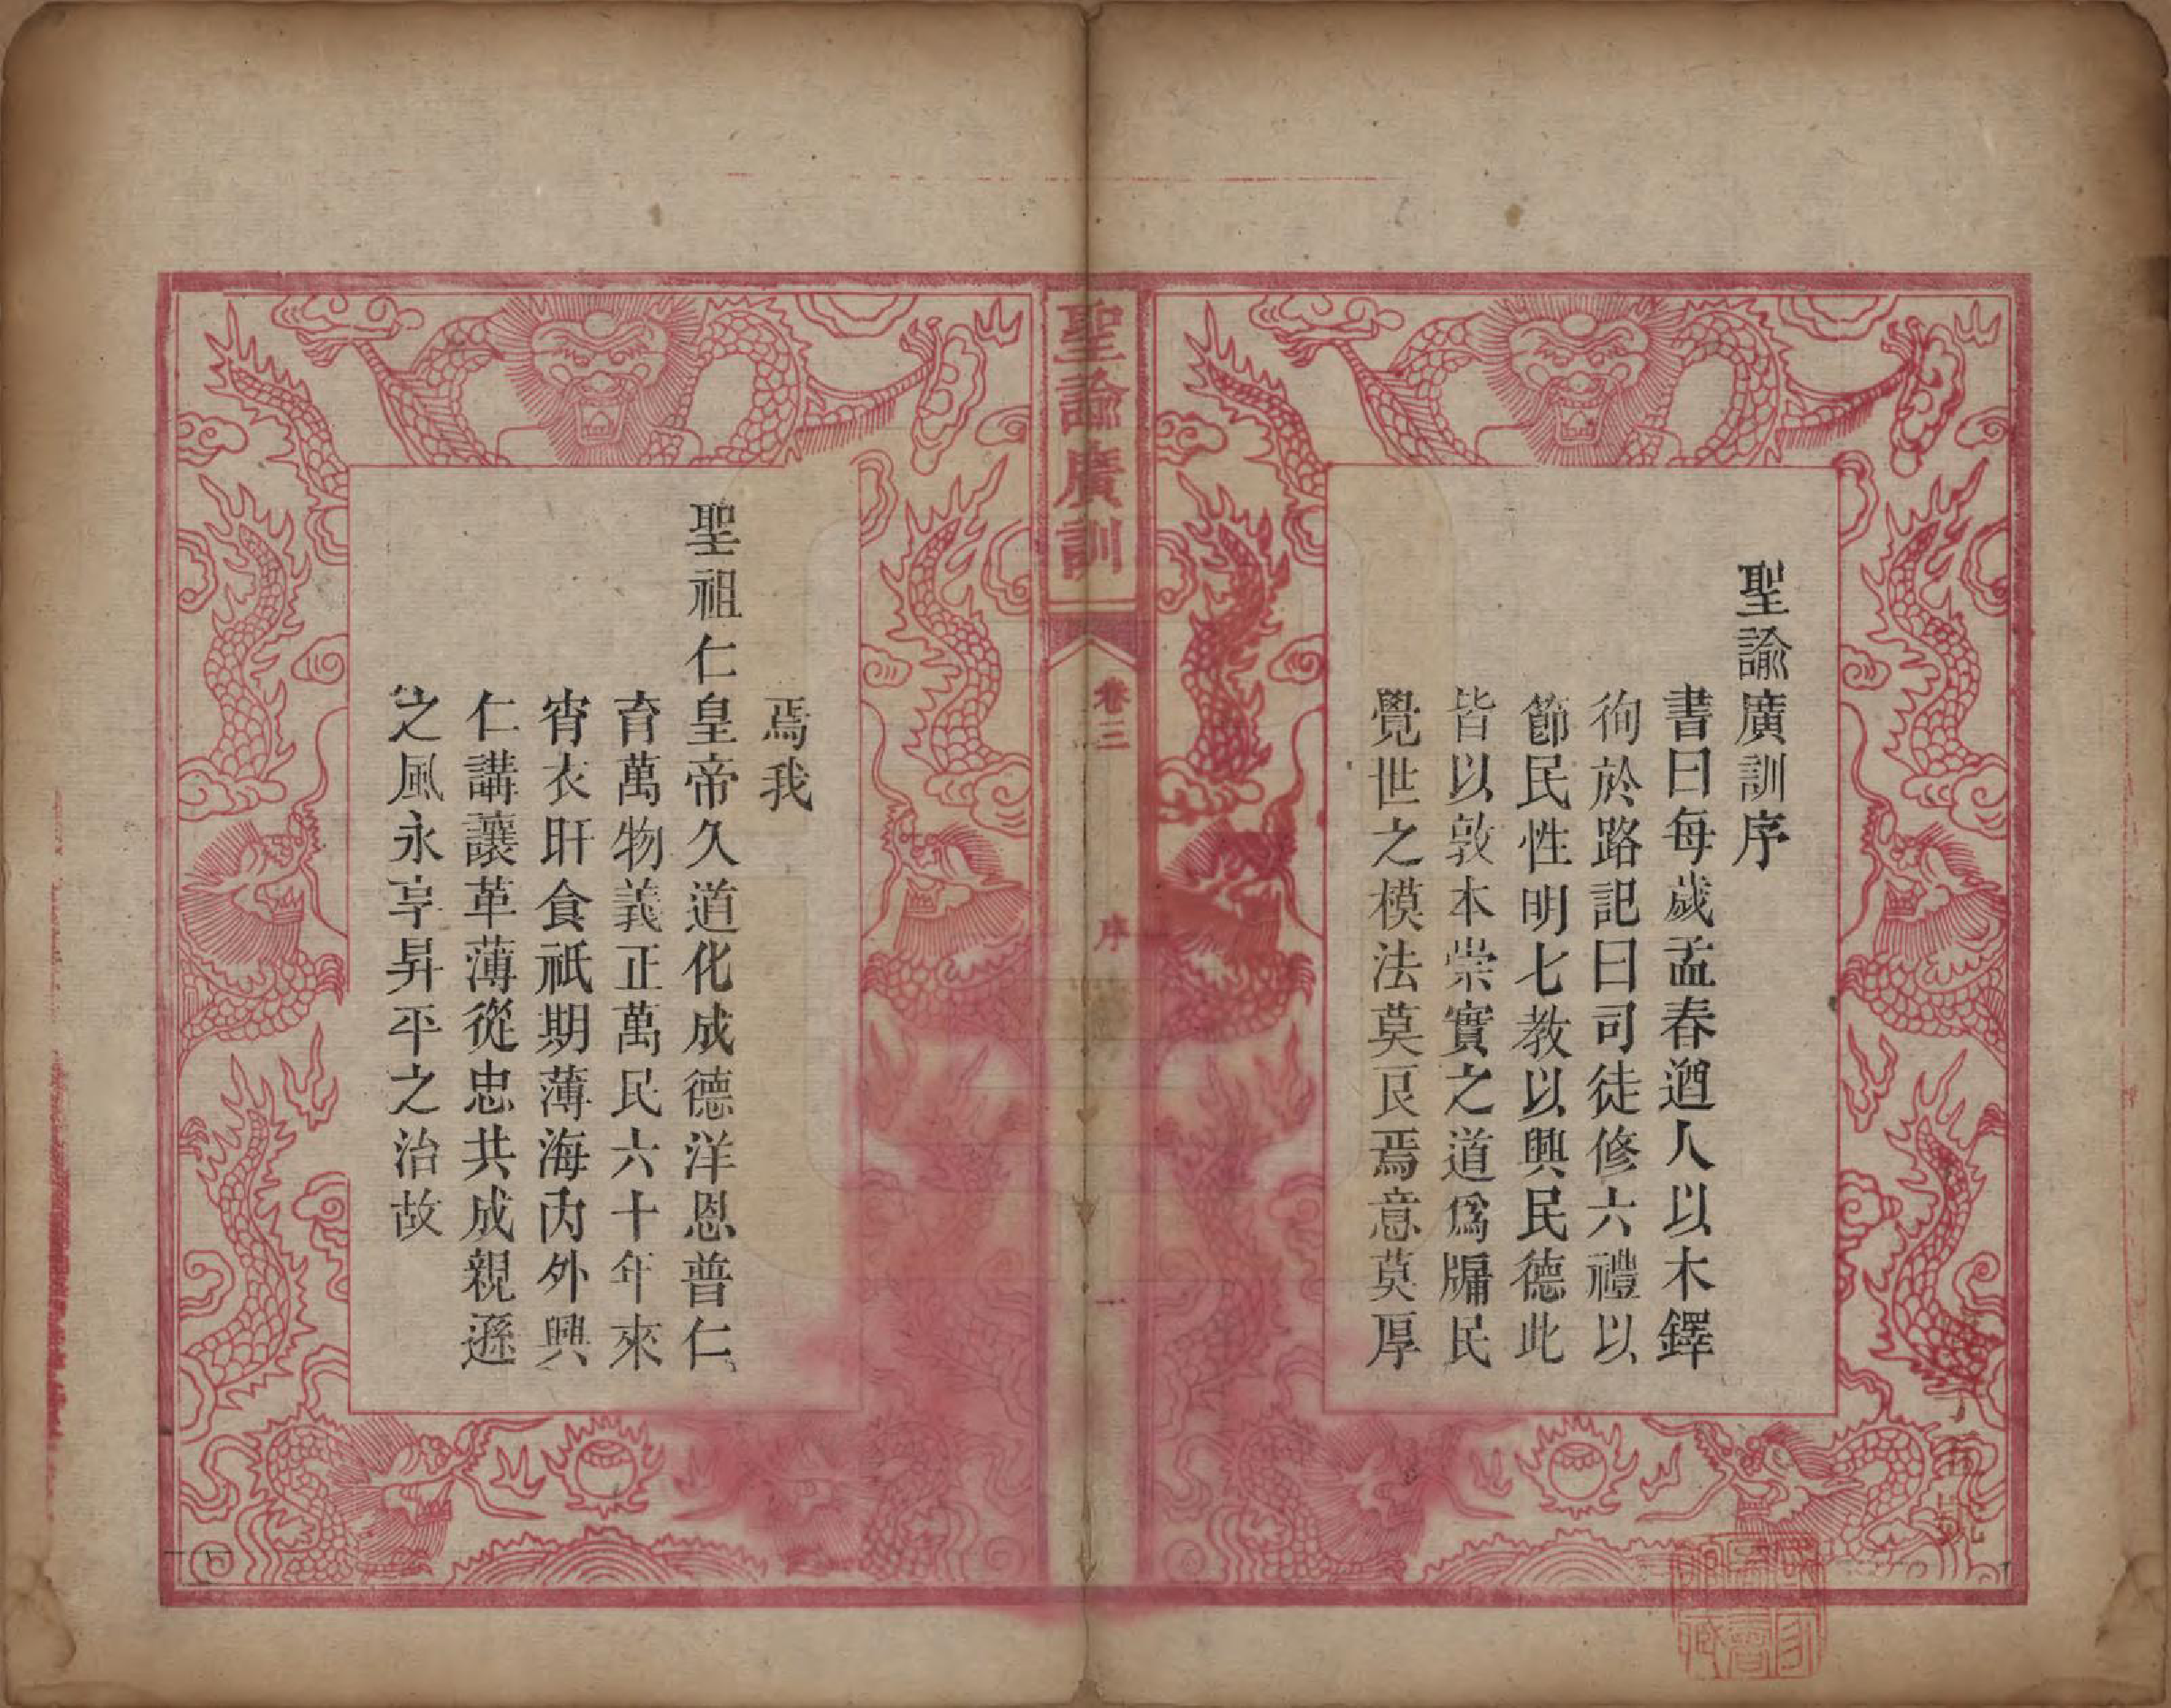 聖諭廣訓序
書曰每歲孟春遒人以木鐸
徇於路記曰司徒修六禮以
節民性明七教以興民德此
皆以敦本崇實之道爲牖民
覺世之模法莫良焉意莫厚
聖諭廣訓
卷三
序
一
焉我
聖祖仁皇帝久道化成德洋恩普仁
育萬物義正萬民六十年來
宵衣旰食祇期薄海內外興
仁講讓革薄從忠共成親遜
之風永享昇平之治故